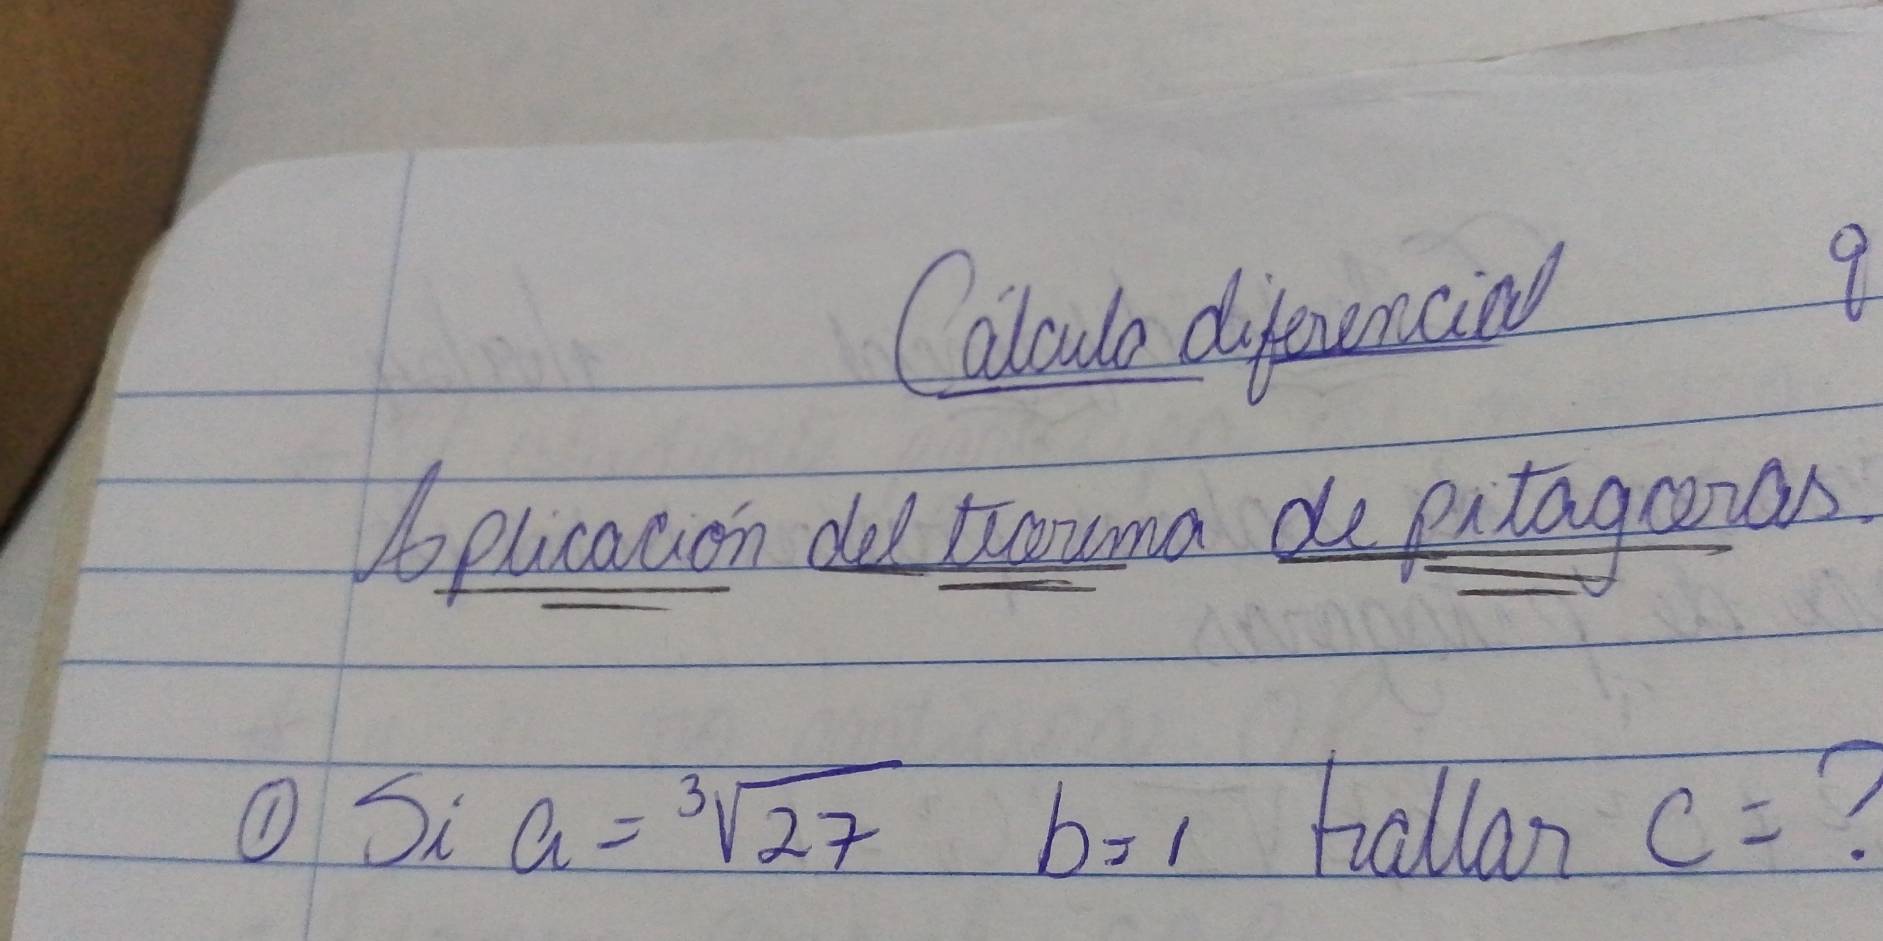 Cálculo diferencial 9
Aplicación del teorema de pitagoras.
① Si a = ³√27 b = 1 hallar c = ?